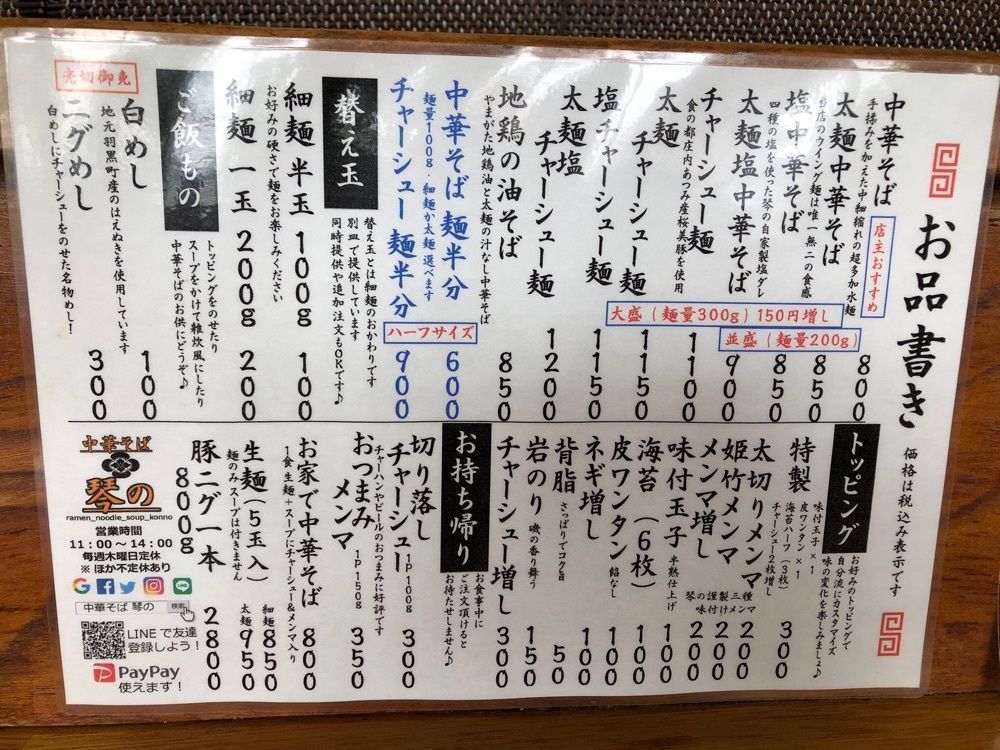 お品書き
価格は税込み表示です
中華そば 800
店主おすすめ
手揉みを加えた中細縮れの超多加水麺
太麺中華そば 850
当店のウイング麺は唯一無二の食感
塩中華そば 850
四種の塩を使った琴の自家製塩ダレ
太麺塩中華そば 900
並盛(麺量200g)
大盛(麺量300g)150円増し
チャーシュー麺 1100
食の都庄内あつみ産桜美豚を使用
太麺チャーシュー麺 1150
塩チャーシュー麺 1150
太麺塩チャーシュー麺 1200
地鶏の油そば 850
やまがた地鶏油と太麺の汁なし中華そば
中華そば 麺半分 600
麺量100g・細麺か太麺選べます
チャーシュー麺半分 900
ハーフサイズ
替え玉
替え玉とは細麺のおかわりです
別皿で提供しています
同時提供や追加注文もOKです♪
細麺 半玉 100g 100
お好みの硬さで麺をお楽しみください
細麺 一玉 200g 200
ご飯もの
トッピングをのせたり
スープをかけて雑炊風にしたり
中華そばのお供にどうぞ♪
白めし 100
地元羽黒町産のはえぬきを使用しています
ニグめし 300
白めしにチャーシューをのせた名物めし!
売切御免
トッピング
お好みのトッピングで
自分流にカスタマイズ
味の変化を楽しみましょ♪
特製 300
味付玉子×1
皮ワンタン×1
海苔ハーフ(3枚)
チャーシュー2枚増し
太切りメンマ 200
姫竹メンマ 200
メンマ増し 200
琴の謹製三種
味付けメンマ
味付玉子 半熟仕上げ 100
海苔(6枚) 100
皮ワンタン 餡なし 100
ネギ増し 100
背脂 さっぱりでコク旨 50
岩のり 磯の香り舞う 150
チャーシュー増し 300
お持ち帰り
お食事中に
ご注文頂けると
お待たせしません♪
切り落し
チャーシュー 1P 100g 300
チャーハンやビールのおつまみに好評です
おつまみ
メンマ 1P 150g 350
お家で中華そば 800
1食 生麺+スープにチャーシュー&メンマ入り
生麺(5玉入) 細麺 850
太麺 950
麺のみ スープは付きません
豚ニグ一本 2800
800g
中華そば
琴の
ramen_noodle_soup_konno
営業時間
11:00〜14:00
毎週木曜日定休
※ほか不定休あり
中華そば 琴の 検索
LINEで友達
登録しよう!
PayPay
使えます!